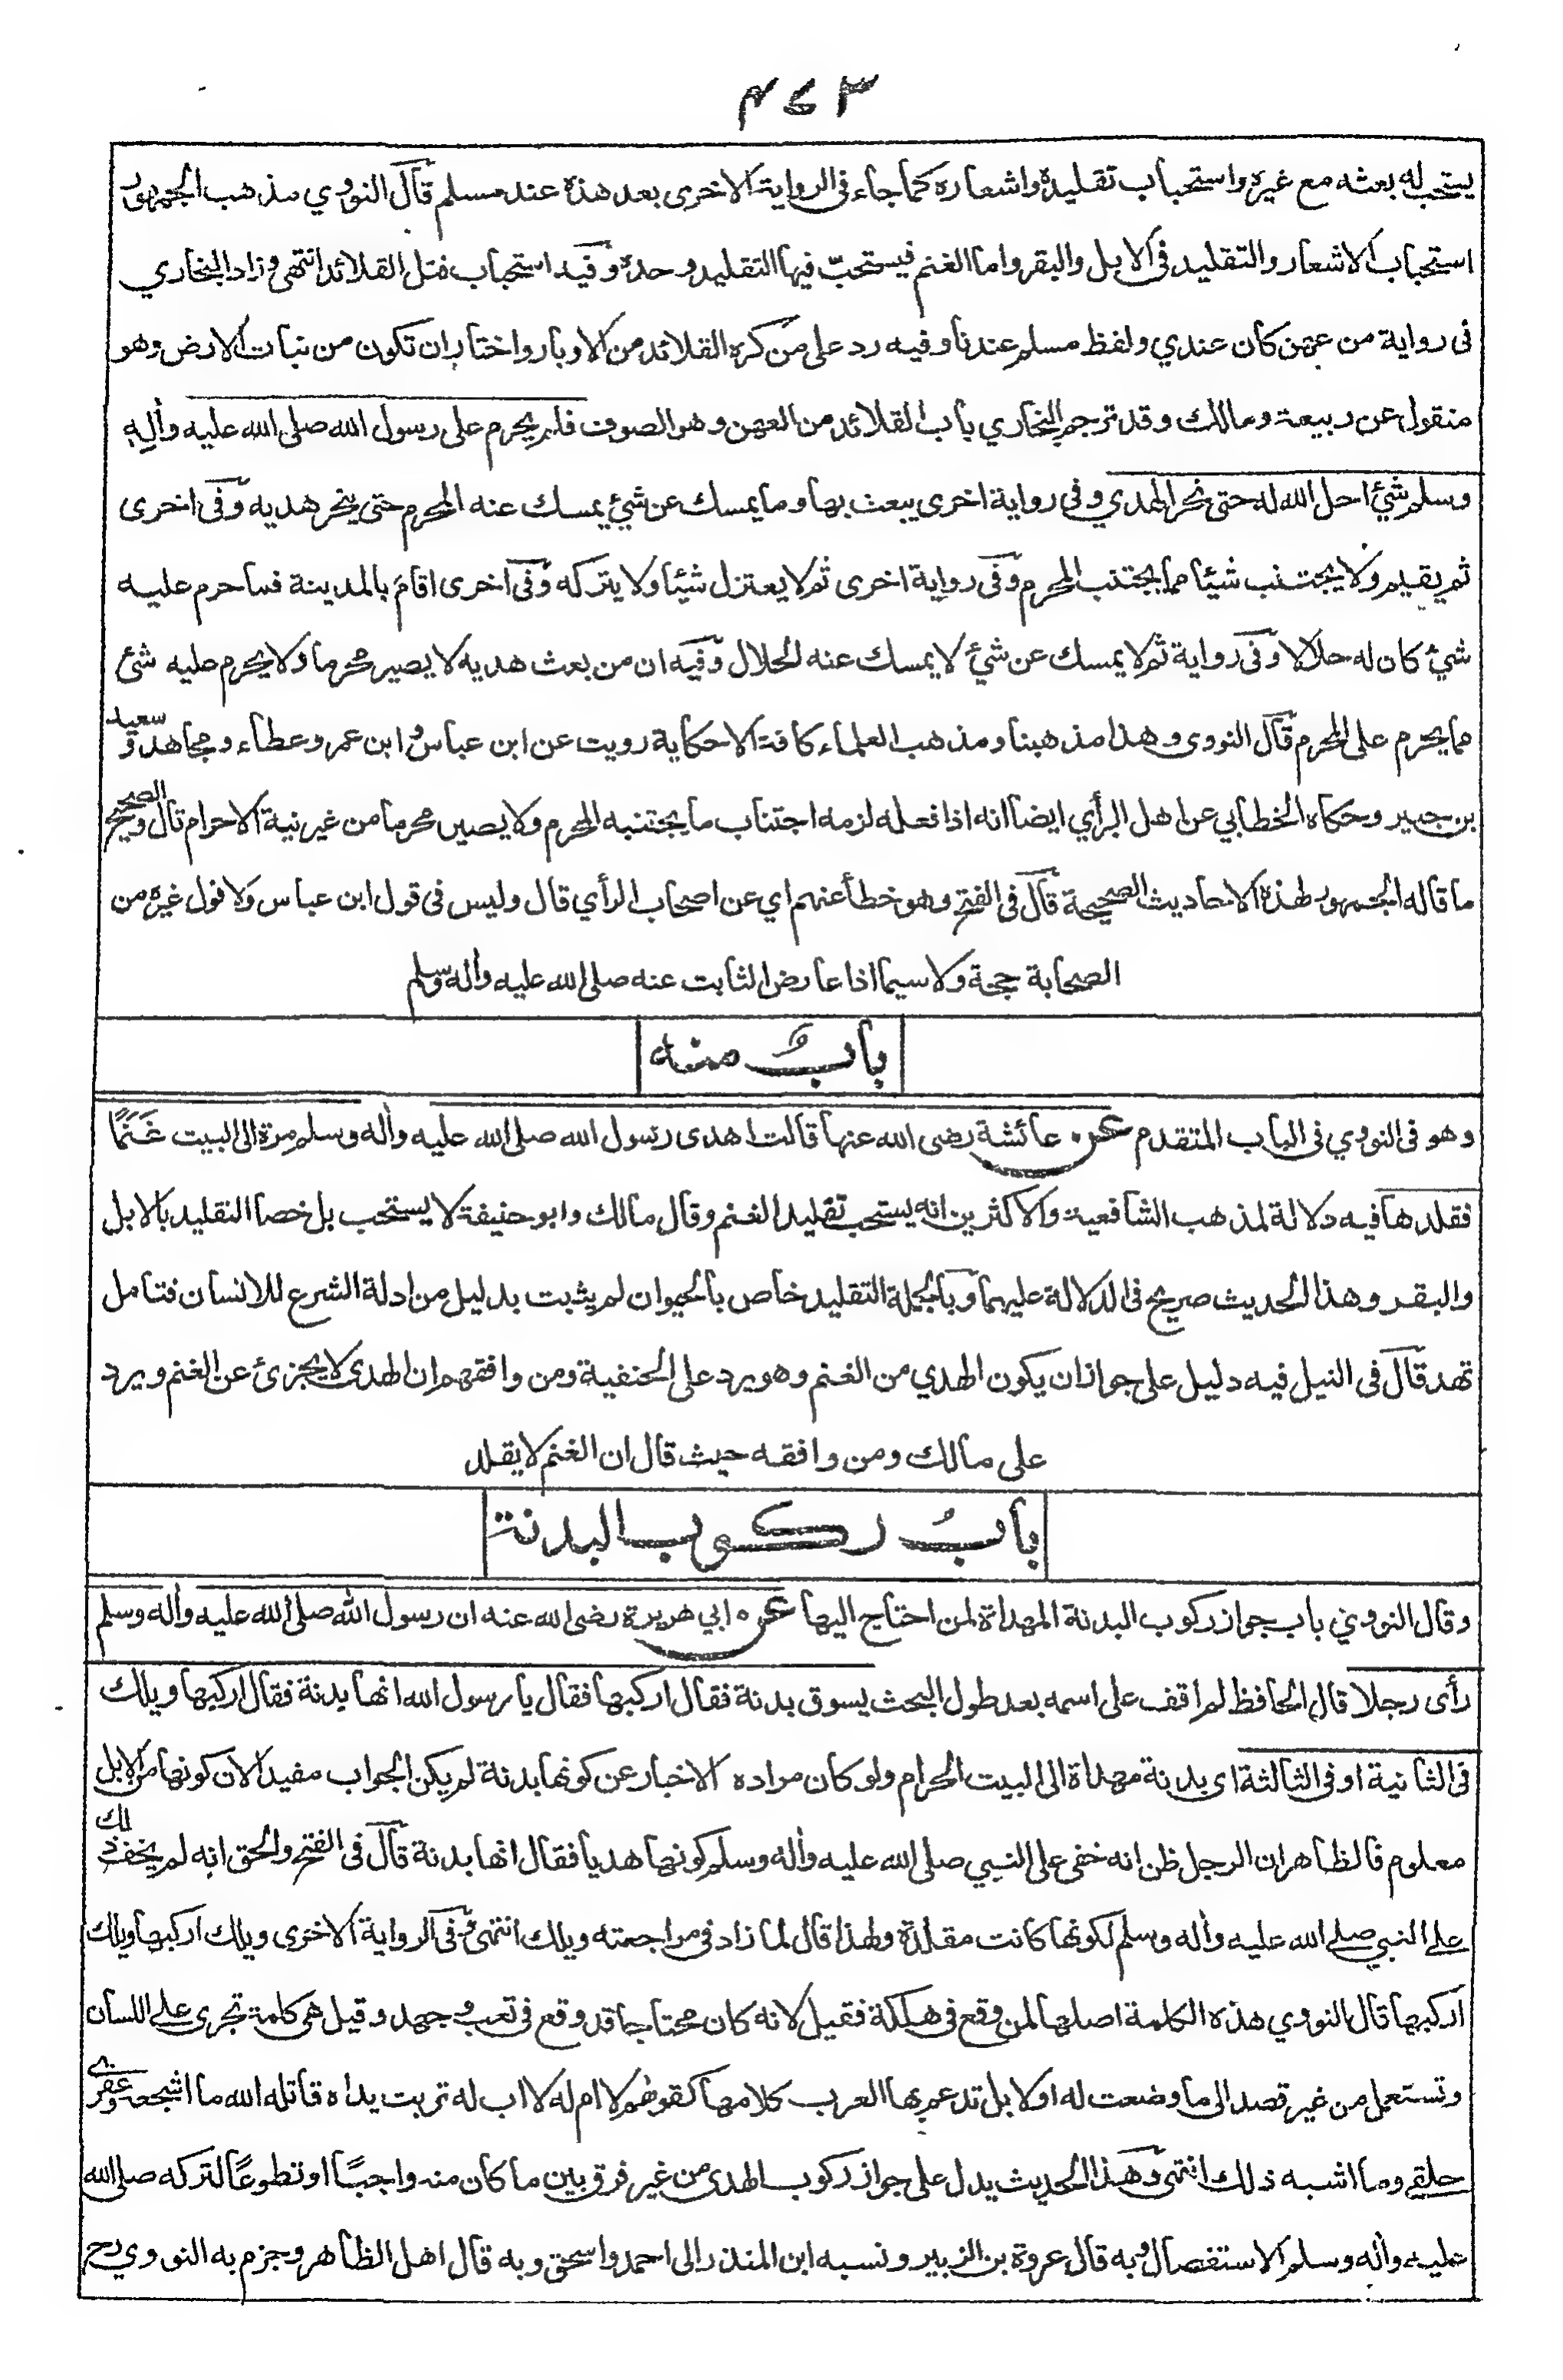 ٤٧٣
يستحب له بعثه مع غيره واستحباب تقليده واشعاره كما جاء فى الرواية الاخرى بعد هذه عند مسلم قال النووي مذهب الجمهور
استحباب الاشعار والتقليد فى الابل والبقر واما الغنم فيستحبّ فيها التقليد وحده وفيه استحباب فتل القلائد انتهى وزاد البخاري
فى رواية من عهن كان عندي ولفظ مسلم عندنا وفيه رد على من كره القلائد من الاوبار واختار ان تكون من نبات الارض وهو
منقول عن ربيعة ومالك وقد ترجم البخاري باب القلائد من العهن وهو الصوف فلم يحرم على رسول الله صلى الله عليه وأله
وسلم شئ احل الله له حتى نحر الهدي وفى رواية اخرى يبعث بها وما يمسك عن شئ يمسك عنه المحرم حتى ينحر هديه وفى اخرى
ثم يقيم ولا يجتنب شيئا مما يجتنب المحرم وفى رواية اخرى ثم لا يعتزل شيئا ولا يتركه وفى اخرى اقام بالمدينة فما حرم عليه
شئ كان له حلالا وفى رواية ثم لا يمسك عن شئ لا يمسك عنه الحلال وفيه ان من بعث هديه لا يصير محرما ولا يحرم عليه شئ
مما يحرم على المحرم قال النووى وهذا مذهبنا ومذهب العلماء كافة الا حكاية رويت عن ابن عباس وابن عمر وعطاء ومجاهد وسعيد
بن جبير وحكاه الخطابي عن اهل الرأي ايضا انه اذا فعله لزمه اجتناب ما يجتنبه المحرم ولا يصير محرما من غير نية الاحرام قال والصحيح
ما قاله الجمهور لهذه الاحاديث الصحيحة قال فى الفتح وهو خطأ عنهم اي عن اصحاب الرأي قال وليس فى قول ابن عباس ولا قول غيره من
الصحابة حجة ولا سيما اذا عارض الثابت عنه صلى الله عليه وأله وسلم
بابٌ منه
وهو فى النووي فى الباب المتقدم عن عائشة رضى الله عنها قالت اهدى رسول الله صلى الله عليه وأله وسلم مرة الى البيت غَنَمًا
فقلدها فيه دلالة لمذهب الشافعية والاكثرين انه يستحب تقليد الغنم وقال مالك وابو حنيفة لا يستحب بل خصا التقليد بالابل
والبقر وهذا الحديث صريح فى الدلالة عليهما وبالجملة التقليد خاص بالحيوان لم يثبت بدليل من ادلة الشرع للانسان فتامل
تهد قال فى النيل فيه دليل على جواز ان يكون الهدي من الغنم وهو يرد على الحنفية ومن وافقهم ان الهدى لا يجزئ عن الغنم ويرد
على مالك ومن وافقه حيث قال ان الغنم لا يقلد
بابُ ركوب البدنة
وقال النووي باب جواز ركوب البدنة المهداة لمن احتاج اليها عن ابي هريرة رضى الله عنه ان رسول الله صلى الله عليه وأله وسلم
رأى رجلا قال الحافظ لم اقف على اسمه بعد طول البحث يسوق بدنة فقال اركبها فقال يا رسول الله انها بدنة فقال اركبها ويلك
فى الثانية او فى الثالثة اى بدنة مهداة الى البيت الحرام ولو كان مراده الاخبار عن كونها بدنة لم يكن الجواب مفيدا لان كونها من الابل
معلوم فالظاهر ان الرجل ظن انه خفى على النبي صلى الله عليه وأله وسلم كونها هديا فقال انها بدنة قال فى الفتح والحق انه لم يخف ذلك
على النبي صلى الله عليه وأله وسلم لكونها كانت مقلدة ولهذا قال لما زاد فى مراجعته ويلك انتهى وفى الرواية الاخرى ويلك اركبها ويلك
اركبها قال النووي هذه الكلمة اصلها لمن وقع فى هلكة فقيل لانه كان محتاجا قد وقع فى تعب وجهد وقيل هى كلمة تجرى على اللسان
وتستعمل من غير قصد الى ما وضعت له اولا بل تدعم بها العرب كلامها كقولهم لا ام له لا اب له تربت يداه قاتله الله ما اشجعه وعقرى
حلقى وما اشبه ذلك انتهى وهذا الحديث يدل على جواز ركوب الهدى من غير فرق بين ما كان منه واجبًا او تطوعًا لتركه صلى الله
عليه وأله وسلم الاستفصال وبه قال عروة بن الزبير ونسبه ابن المنذر الى احمد واسحق وبه قال اهل الظاهر وجزم به النووي رح